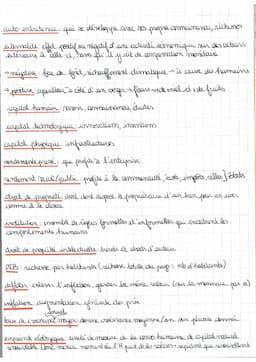 auto-entretenue : qui se développe avec ses propres connaissances, richesses
externalité : effet positif ou négatif d'une activité économique sur des acteurs
extérieurs à celle-ci, sans qu'il y ait de compensation monétaire
→ négative : feu de forêt, réchauffement climatique → à cause des humains
→ positive : apiculteur à côté d'un verger → fleurs → de miel et de fruits
capital humain : savoir, connaissances, études
capital technologique : innovations, inventions
capital physique : infrastructures
rendement privé : qui profite à l'entreprise
rendement social/public : profite à la communauté, aides, impôts, Etats
droit de propriété : droit dont dispose le propriétaire d'un bien pour en user
comme il le désire
institution : ensemble de règles formelles et informelles qui encadrent les
comportements humains
droit de propriété intellectuelle : brevets et droits d'auteur
PIB : richesse par habitants (richesse totale du pays : nb d'habitants)
déflater : enlever l'inflation, garder la même valeur (de la monnaie par ex)
inflation : augmentation générale des prix
annuel
taux de croissance moyen : donne croissance moyenne/an sur période donnée
empreinte écologique : unité de mesure de la conso humaine de capital naturel